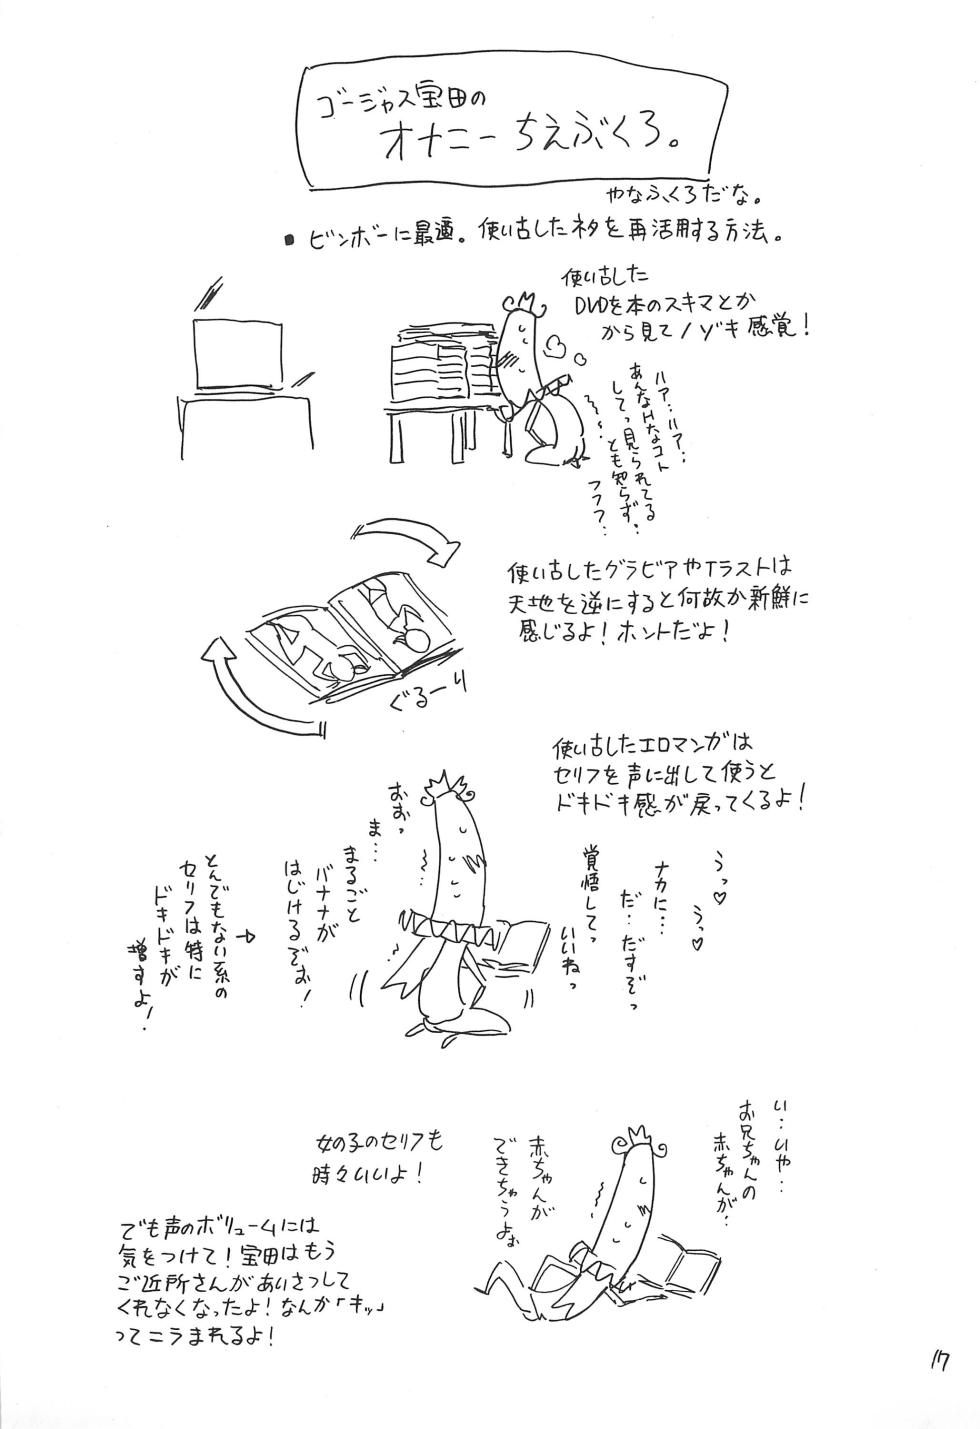 ゴージャス宝田の
オナニーちえぶくろ。
やなふくろだな。
• ビンボーに最適。使い古したネタを再活用する方法。
使い古した
DVDを本のスキマとか
から見てノゾキ感覚！
ハァ…ハァ…
あんなHなコト
してっ見られてる
とも知らず…
フフフ…
使い古したグラビアやイラストは
天地を逆にすると何故か新鮮に
感じるよ！ホントだよ！
ぐるーり
使い古したエロマンガは
セリフを声に出して使うと
ドキドキ感が戻ってくるよ！
うっ♡
うっ♡
ナカに…
だ…だすぞっ
覚悟してっ
いいねっ
おおっ
ま…
まるごと
バナナが
はじけるぞぉ！
→
とんでもない系の
セリフは特に
ドキドキが
増すよ！
女の子のセリフも
時々いいよ！
い…いや…
お兄ちゃんの
赤ちゃんが…
赤ちゃんが
できちゃうよぉ
でも声のボリュームには
気をつけて！宝田はもう
ご近所さんがあいさつして
くれなくなったよ！なんか「キッ」
ってニラまれるよ！
17